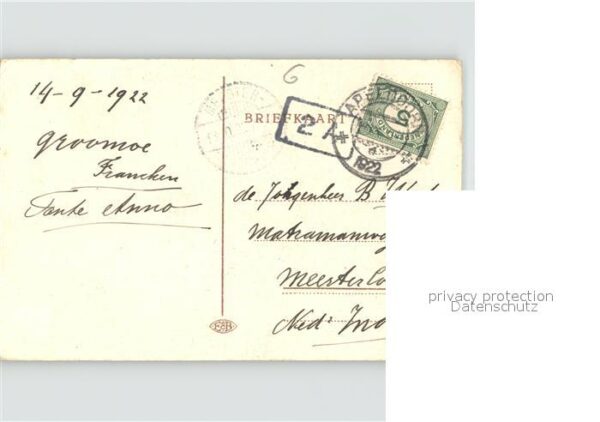 14-9-1922
Groomoe
Francken
Tante Anno
6
BRIEFKAART
2 A
APELDOORN
1922
5
de Jongenheer B
Matramanweg
Meester
Ned: Indi
privacy protection
Datenschutz